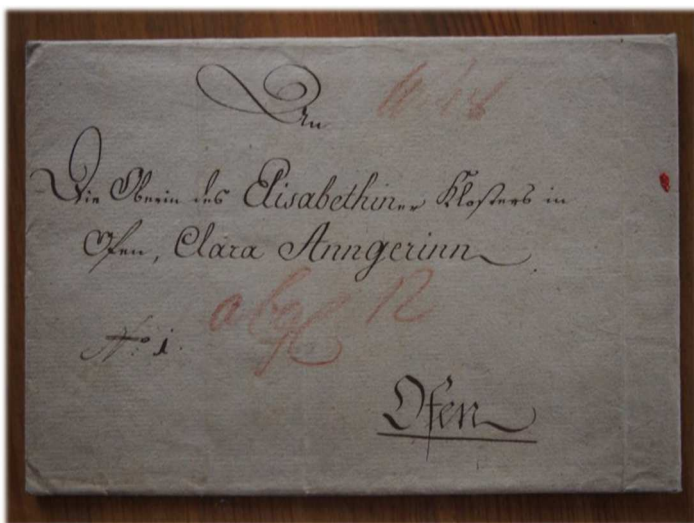 An
Die Oberin des Elisabethiner Klosters in
Ofen, Clara Anngerinn
No 1.
Ofen